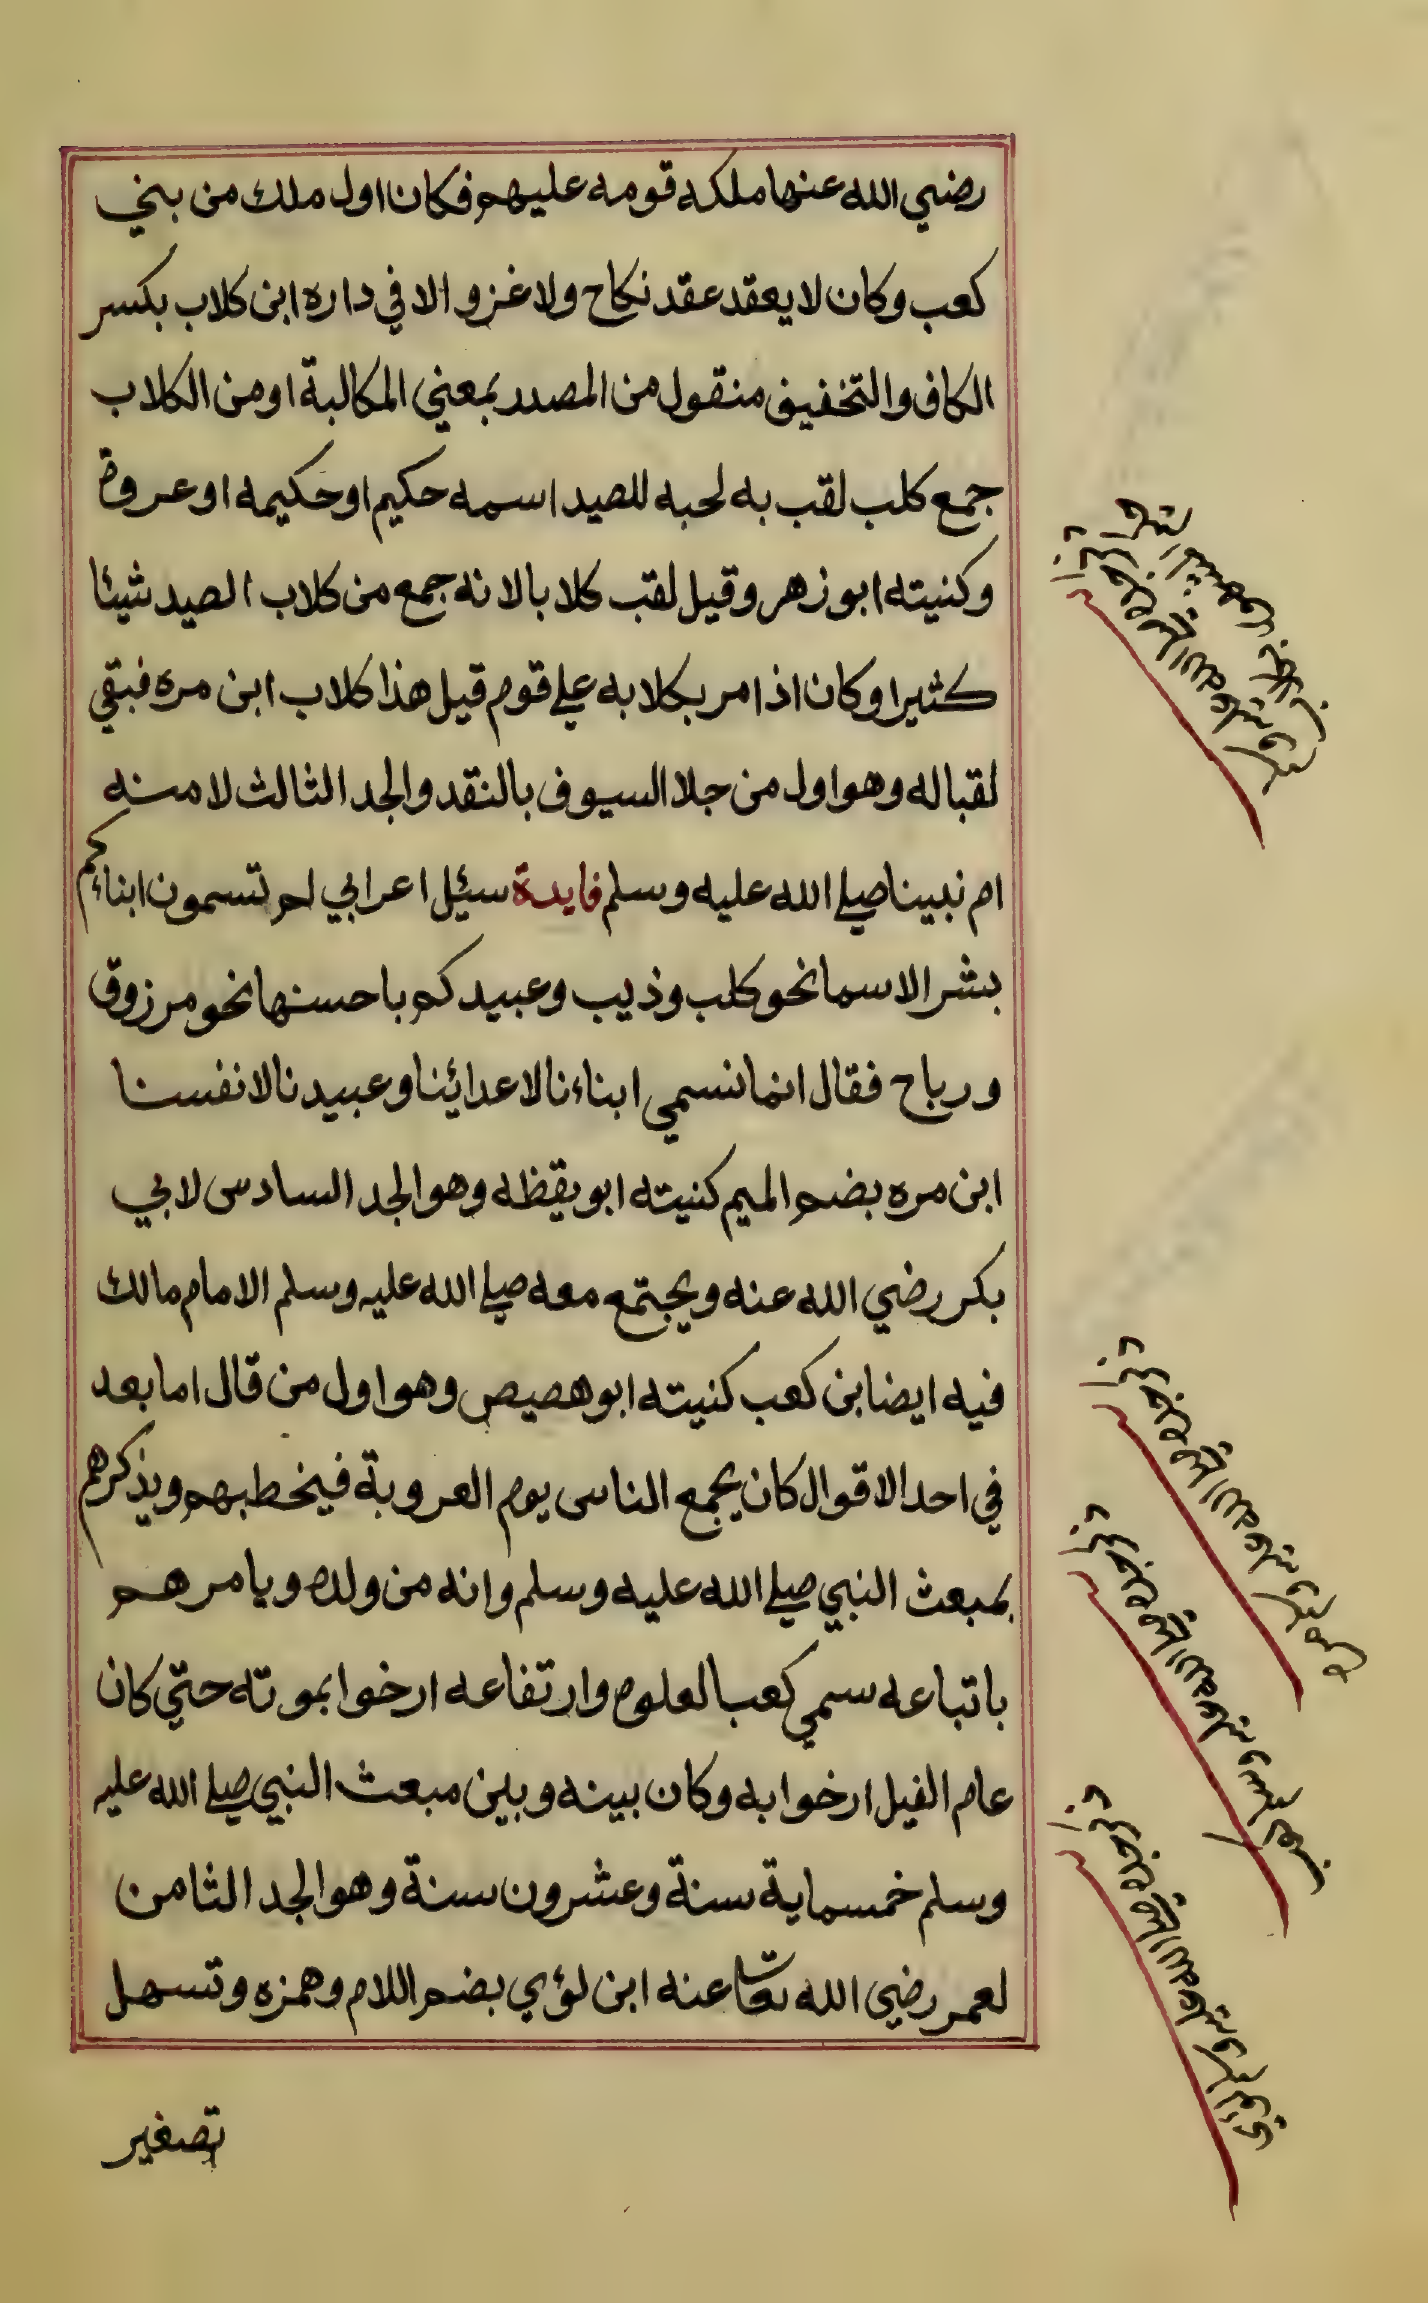 رضي الله عنها ملكه قومه عليهم فكان اول ملك من بني
كعب وكان لا يعقد عقد نكاح ولا غزو الا في داره ابن كلاب بكسر
الكاف والتخفيف منقول من المصدر بمعني المكالبة او من الكلاب
جمع كلب لقب به لحبه للصيد اسمه حكيم او حكيمه او عروة
وكنيته ابو زهر وقيل لقب كلابا لانه جمع من كلاب الصيد شيئا
كثيرا وكان اذا مر بكلابه علي قوم قيل هذا كلاب ابن مره فبقي
لقبا له وهو اول من جلا السيوف بالنقد والجد الثالث لامنه
ام نبينا صلي الله عليه وسلم فايدة سئيل اعرابي لم تسمون ابناءكم
بشر الاسما نحو كلب وذيب وعبيدكم باحسنها نحو مرزوق
ورباح فقال انما نسمي ابناءنا لاعدائينا وعبيدنا لانفسنا
ابن مره بضم الميم كنيته ابو يقظه وهو الجد السادس لابي
بكر رضي الله عنه ويجتمع معه صلي الله عليه وسلم الامام مالك
فيه ايضا بن كعب كنيته ابو هصيص وهو اول من قال اما بعد
في احد الاقوال كان يجمع الناس يوم العروبة فيخطبهم ويذكرهم
بمبعث النبي صلي الله عليه وسلم وانه من ولده ويامرهم
باتباعه سمي كعبا لعلوه وارتفاعه ارخوا بموته حتي كان
عام الفيل ارخوا به وكان بينه وبين مبعث النبي صلي الله عليه
وسلم خمسماية سنة وعشرون سنة وهو الجد الثامن
لعمر رضي الله تعا عنه ابن لؤي بضم اللام وهمزه وتسهل
تصغير
صلي الله عليه وسلم
صلي الله عليه وسلم مره
صلي الله عليه وسلم كعب
صلي الله عليه وسلم لؤي